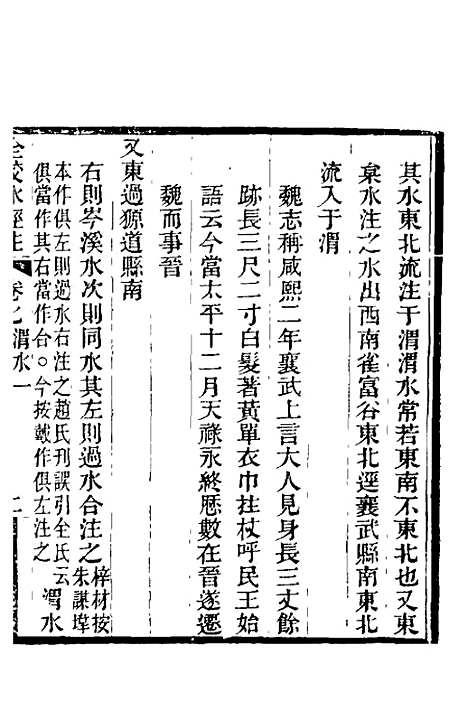 其水東北流注于渭渭水常若東南不東北也又東
枲水注之水出西南雀富谷東北逕襄武縣南東北
流入于渭
魏志稱咸熙二年襄武上言大人見身長三丈餘
跡長三尺二寸白髮著黃單衣巾拄杖呼民王始
語云今當太平十二月天祿永終厯數在晉遂遷
魏而事晉
又東過獂道縣南
右則岑溪水次則同水其左則過水合注之梓材按朱謀㙔
本作俱左則過水右注之趙氏刊誤引全氏云
俱當作其右當作合○今按戴作俱左注之渭水
全校水經注 卷 渭水一 二